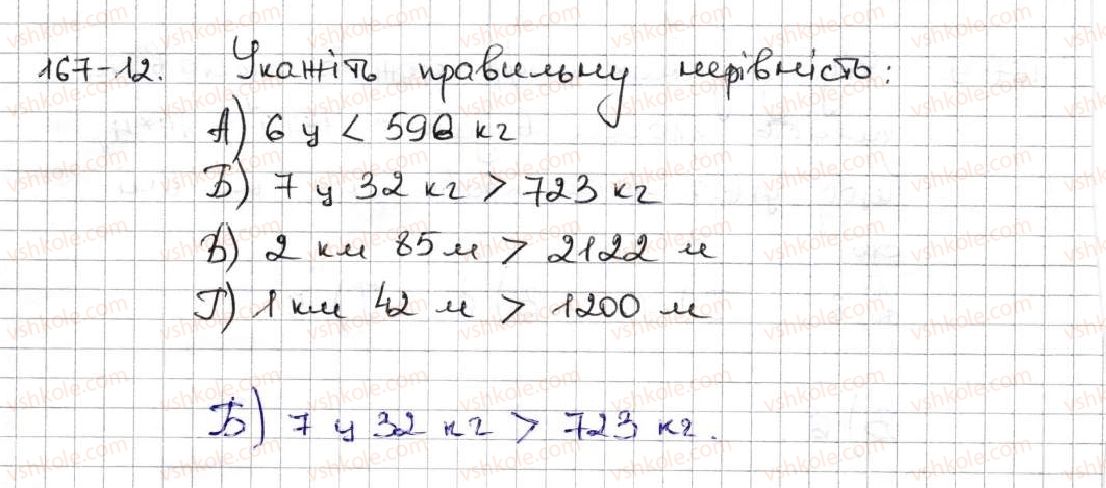 167-12. Укажіть правильну нерівність:
А) 6 ц < 598 кг
Б) 7 ц 32 кг > 723 кг
В) 2 км 85 м > 2122 м
Г) 1 км 42 м > 1200 м
Б) 7 ц 32 кг > 723 кг.